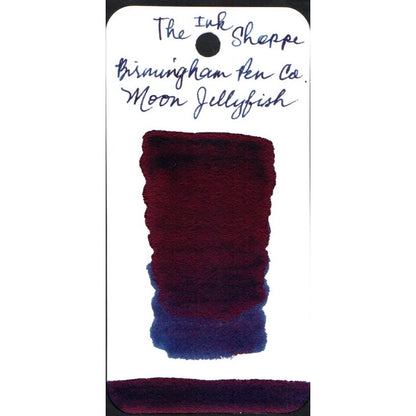 The Ink Shoppe
Birmingham Pen Co.
Moon Jellyfish